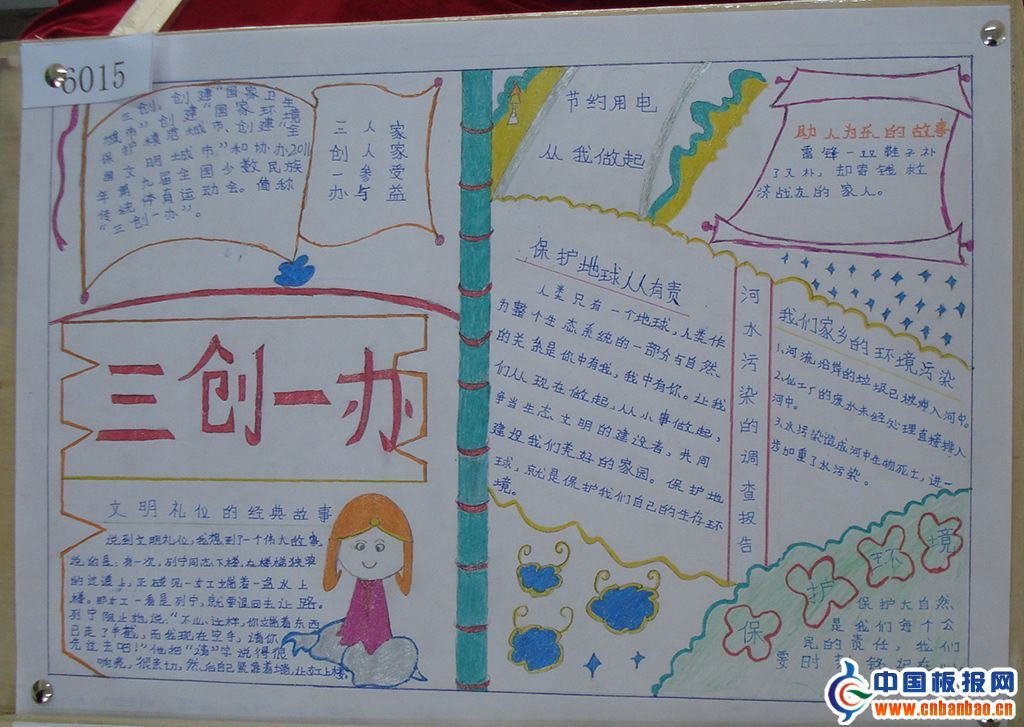 6015
三创,创建“国家卫生
城市”创建“国家环境
保护模范城市、创建“全
国文明城市”和协办2011
年第九届全国少数民族
传统体育运动会。简称
“三创一办”。
三创一办
人人参与
家家受益
三创一办
文明礼位的经典故事
说到文明礼位,我想到了一个伟大故事,
有一次,列宁同志下楼,在楼梯狭窄
的过道上,正碰见一女工端着一盆水上
楼。那女工一看是列宁,就要退回去让路。
列宁阻止她说:“不必这样,你端着东西
已走了半截,而我现在空手,请你
先过去吧!”他把“请”字说得很
响亮,很亲切。然后自己紧靠着墙,让女工上楼。
节约用电
从我做起
助人为乐的故事
雷锋一双鞋子补
了又补,却寄钱救
济战友的家人。
保护地球人人有责
人类只有一个地球,人类作
为整个生态系统的一部分与自然
的关系是你中有我,我中有你。让我
们从现在做起,从小事做起,
争当生态文明的建设者,共同
建设我们美好的家园。保护地
球,就是保护我们自己的生存环
境。
河水污染的调查报告
我们家乡的环境污染
1、河流沿岸的垃圾已被排入河中。
2、化工厂的废水未经处理直接排入
河中。
3、水污染造成河中生物死亡,进一
步加重了水污染。
保护环境
保护大自然、
是我们每个公
民的责任,我们
要时
中国板报网
www.cnbanbao.cn